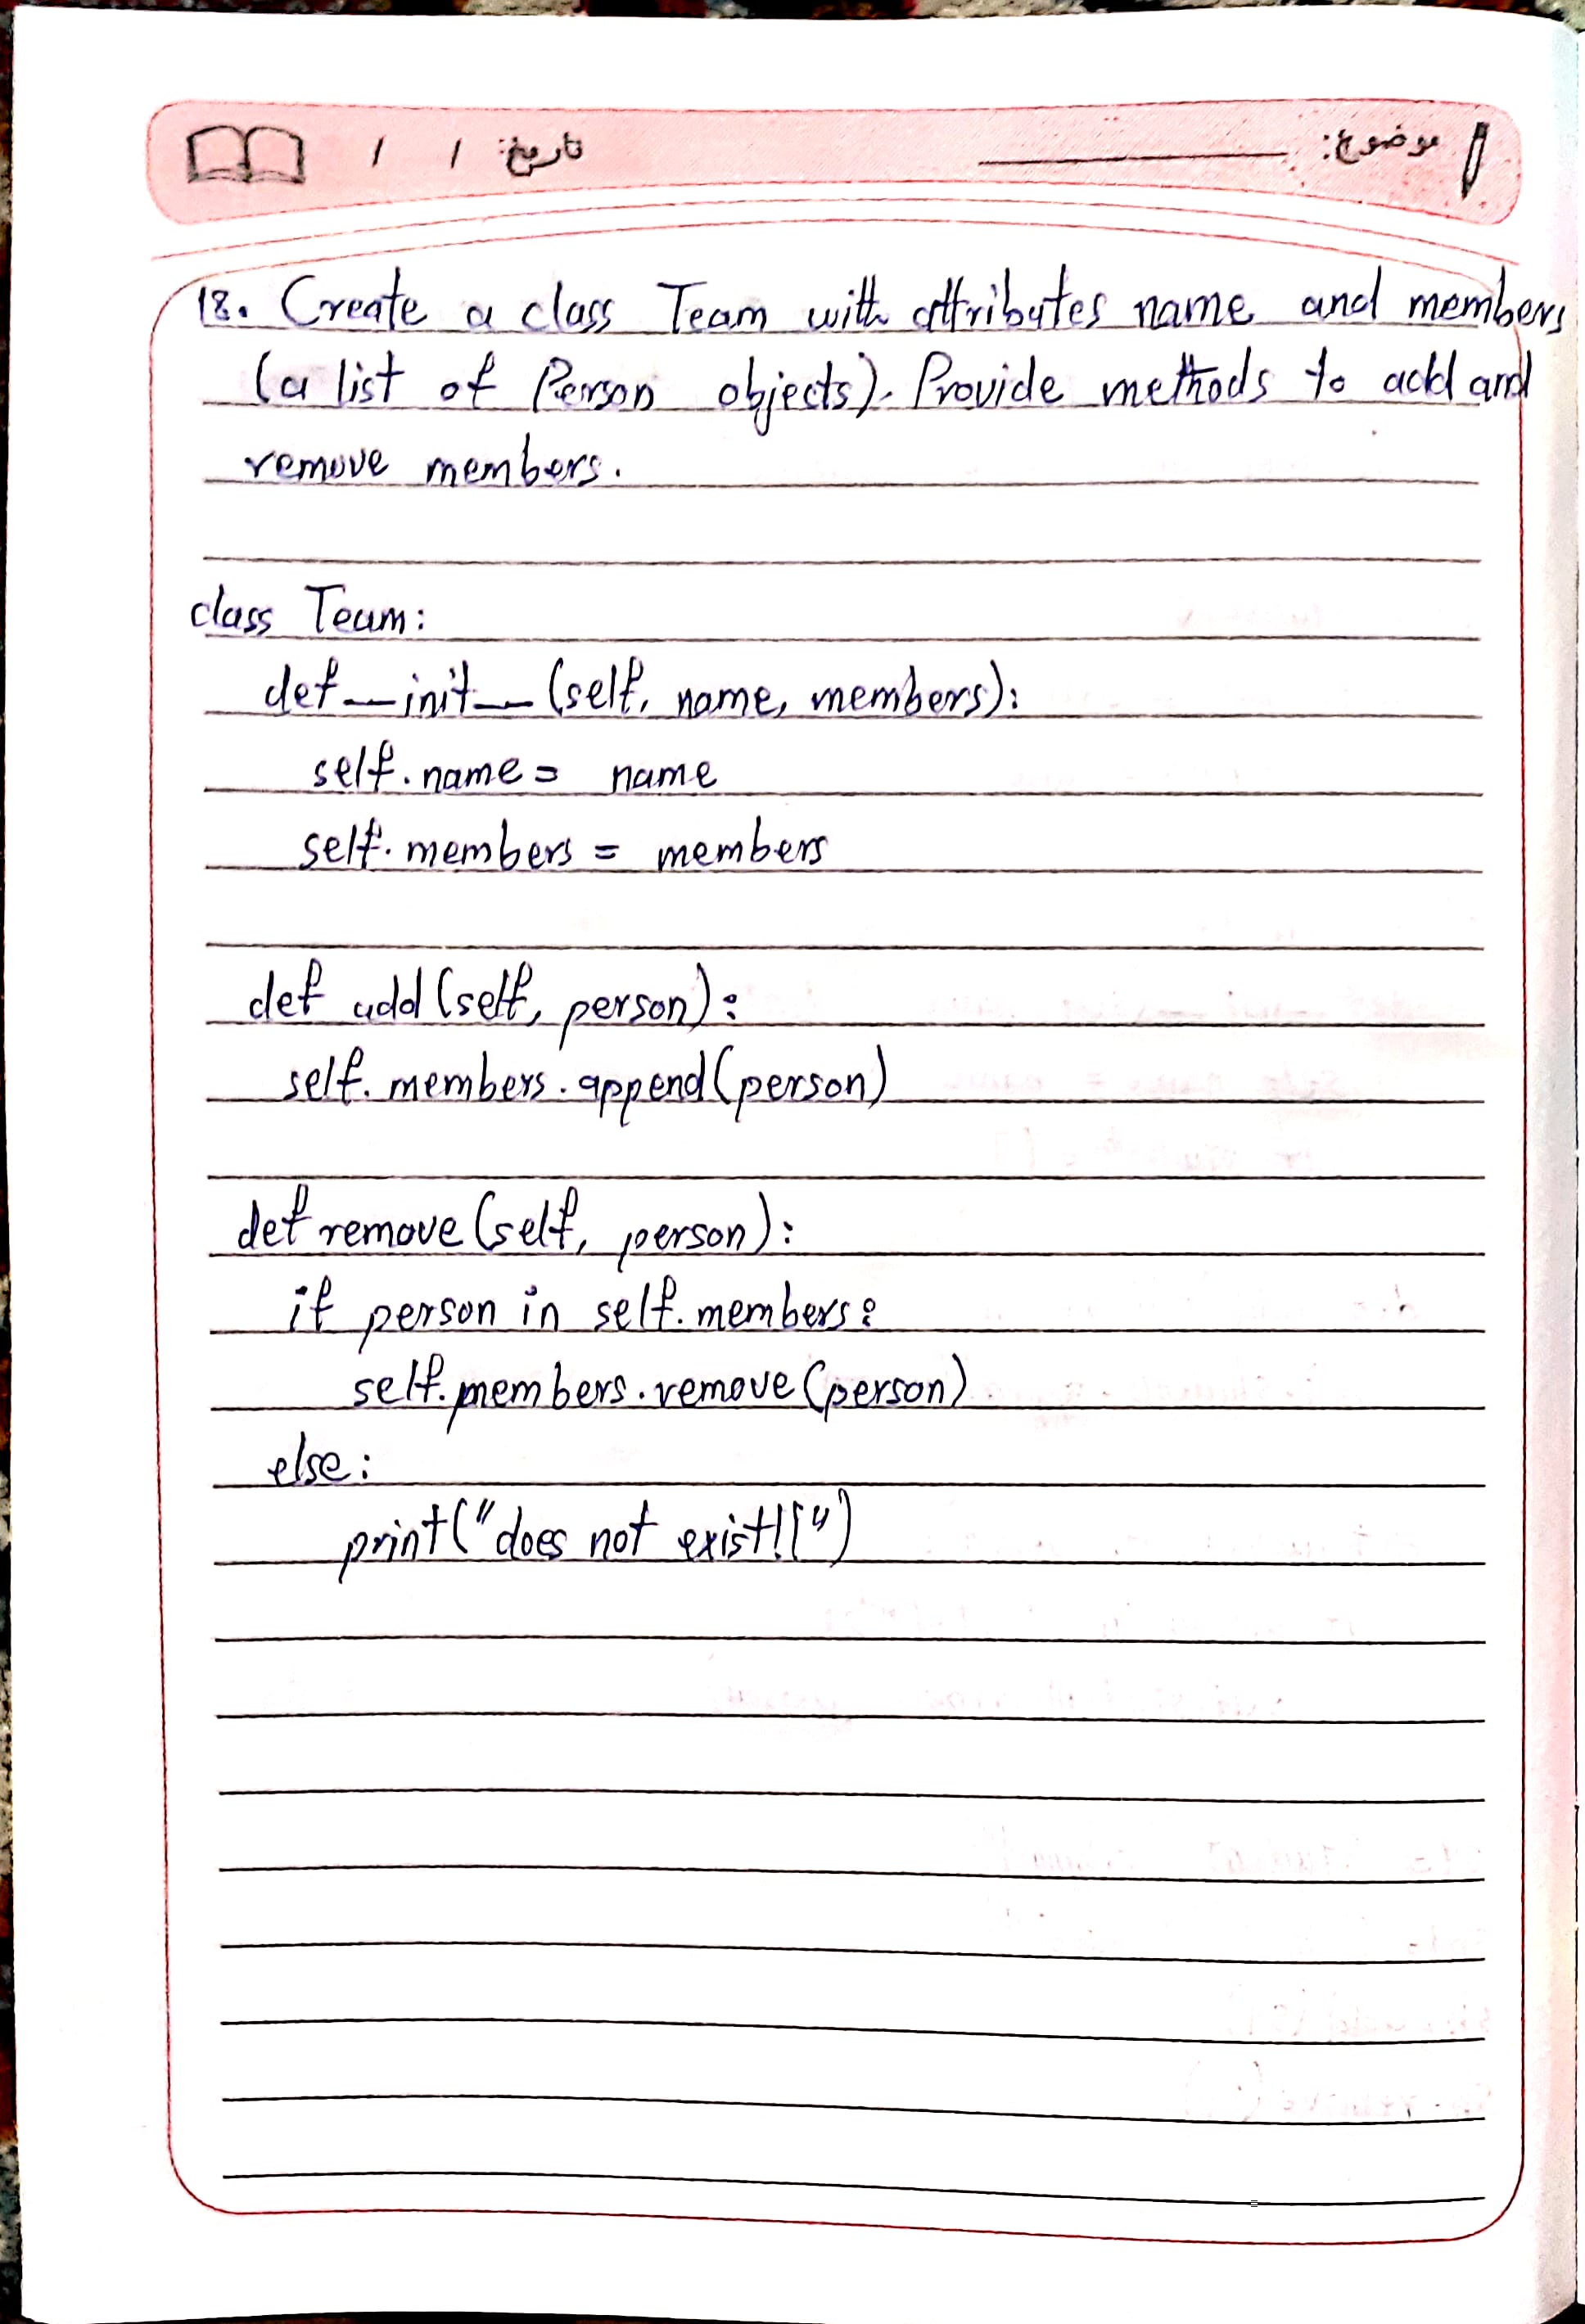 موضوع: تاریخ: / /
18. Create a class Team with attributes name and members
(a list of Person objects). Provide methods to add and
remove members.
class Team:
def __init__(self, name, members):
self.name = name
self.members = members
def add(self, person):
self.members.append(person)
def remove(self, person):
if person in self.members:
self.members.remove(person)
else:
print("does not exist!!")